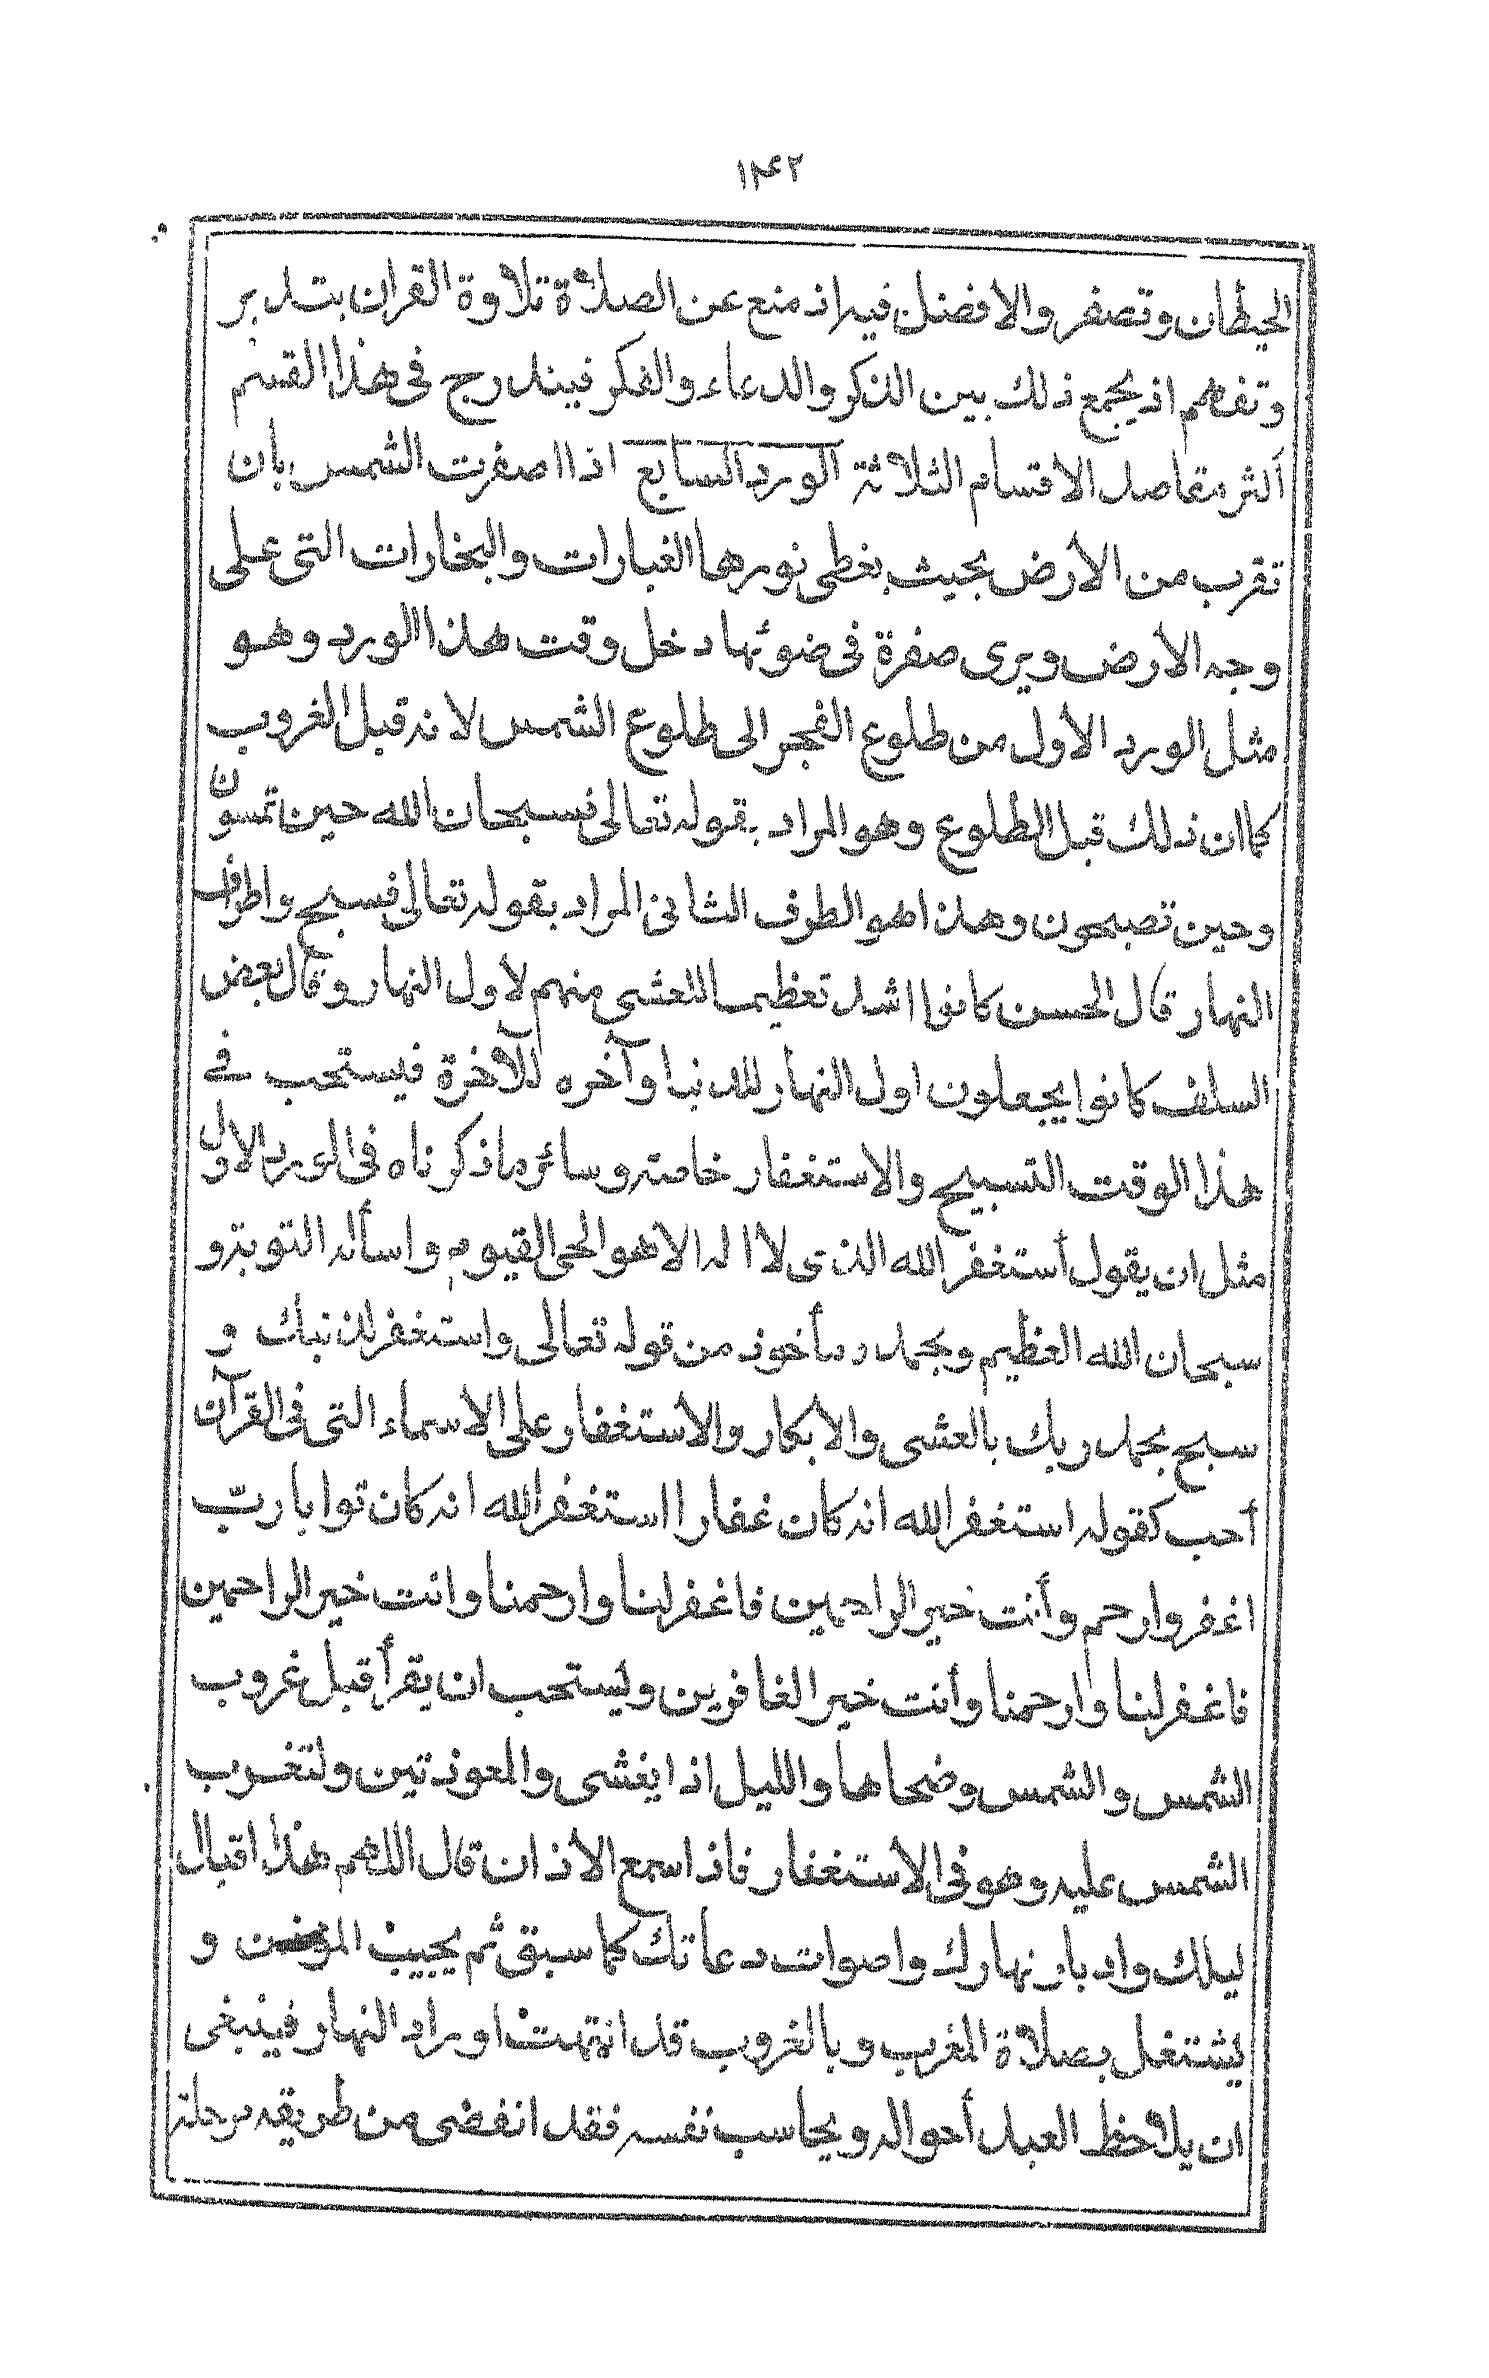 ١٢٤٢
الحيطان وتصفر والافضل فيه اذ منع عن الصلاة تلاوة القران بتدبر
وتفهم اذ يجمع ذلك بين الذكر والدعاء والفكر فيندرج فى هذا القسم
أكثر مقاصد الاقسام الثلاثة الورد السابع اذا اصفرت الشمس بان
تقرب من الأرض بحيث يغطى نورها الغبارات والبخارات التى على
وجه الارض ويرى صفرة فى ضوئها دخل وقت هذا الورد وهو
مثل الورد الأول من طلوع الفجر الى طلوع الشمس لانه قبل الغروب
كما ان ذلك قبل الطلوع وهو المراد بقوله تعالى فسبحان الله حين تمسون
وحين تصبحون وهذا هو الطرف الثانى المراد بقوله تعالى فسبح واطراف
النهار قال الحسن كانوا اشد تعظيما للعشى منهم لاول النهار وقال بعض
السلف كانوا يجعلون اول النهار للدنيا وآخره للآخرة فيستحب فى
هذا الوقت التسبيح والاستغفار خاصة وسائر ما ذكرناه فى الورد الاول
مثل ان يقول أستغفر الله الذى لا اله الا هو الحى القيوم واسأله التوبة و
سبحان الله العظيم وبحمده مأخوذ من قوله تعالى واستغفر لذنبك و
سبح بحمد ربك بالعشى والابكار والأستغفار على الاسماء التى فى القرآن
أحب كقوله استغفر الله انه كان غفارا استغفر الله انه كان توابا ربّ
اغفر وارحم وأنت خير الراحمين فاغفر لنا وارحمنا وانت خير الراحمين
فاغفر لنا وارحمنا وأنت خير الغافرين وليستحب ان يقرأ قبل غروب
الشمس والشمس وضحاها والليل اذا يغشى والمعوذتين ولتغرب
الشمس عليه وهو فى الأستغفار فاذا سمع الأذان قال اللهم هذا اقبال
ليلك وادبار نهارك واصوات دعاتك كما سبق ثم يجيب المؤذن و
ليشتغل بصلاة المغرب وبالغروب قد انتهت اوراد النهار فينبغى
ان يلاحظ العبد أحواله ويحاسب نفسه فقد انقضى من طريقه مرحلة